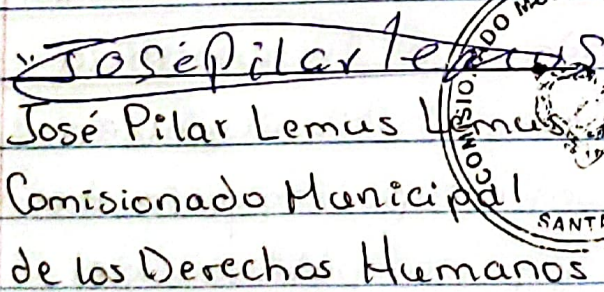 José Pilar Lemus
José Pilar Lemus Lemus
Comisionado Municipal
de los Derechos Humanos
COMISIO
DO MU
SANT